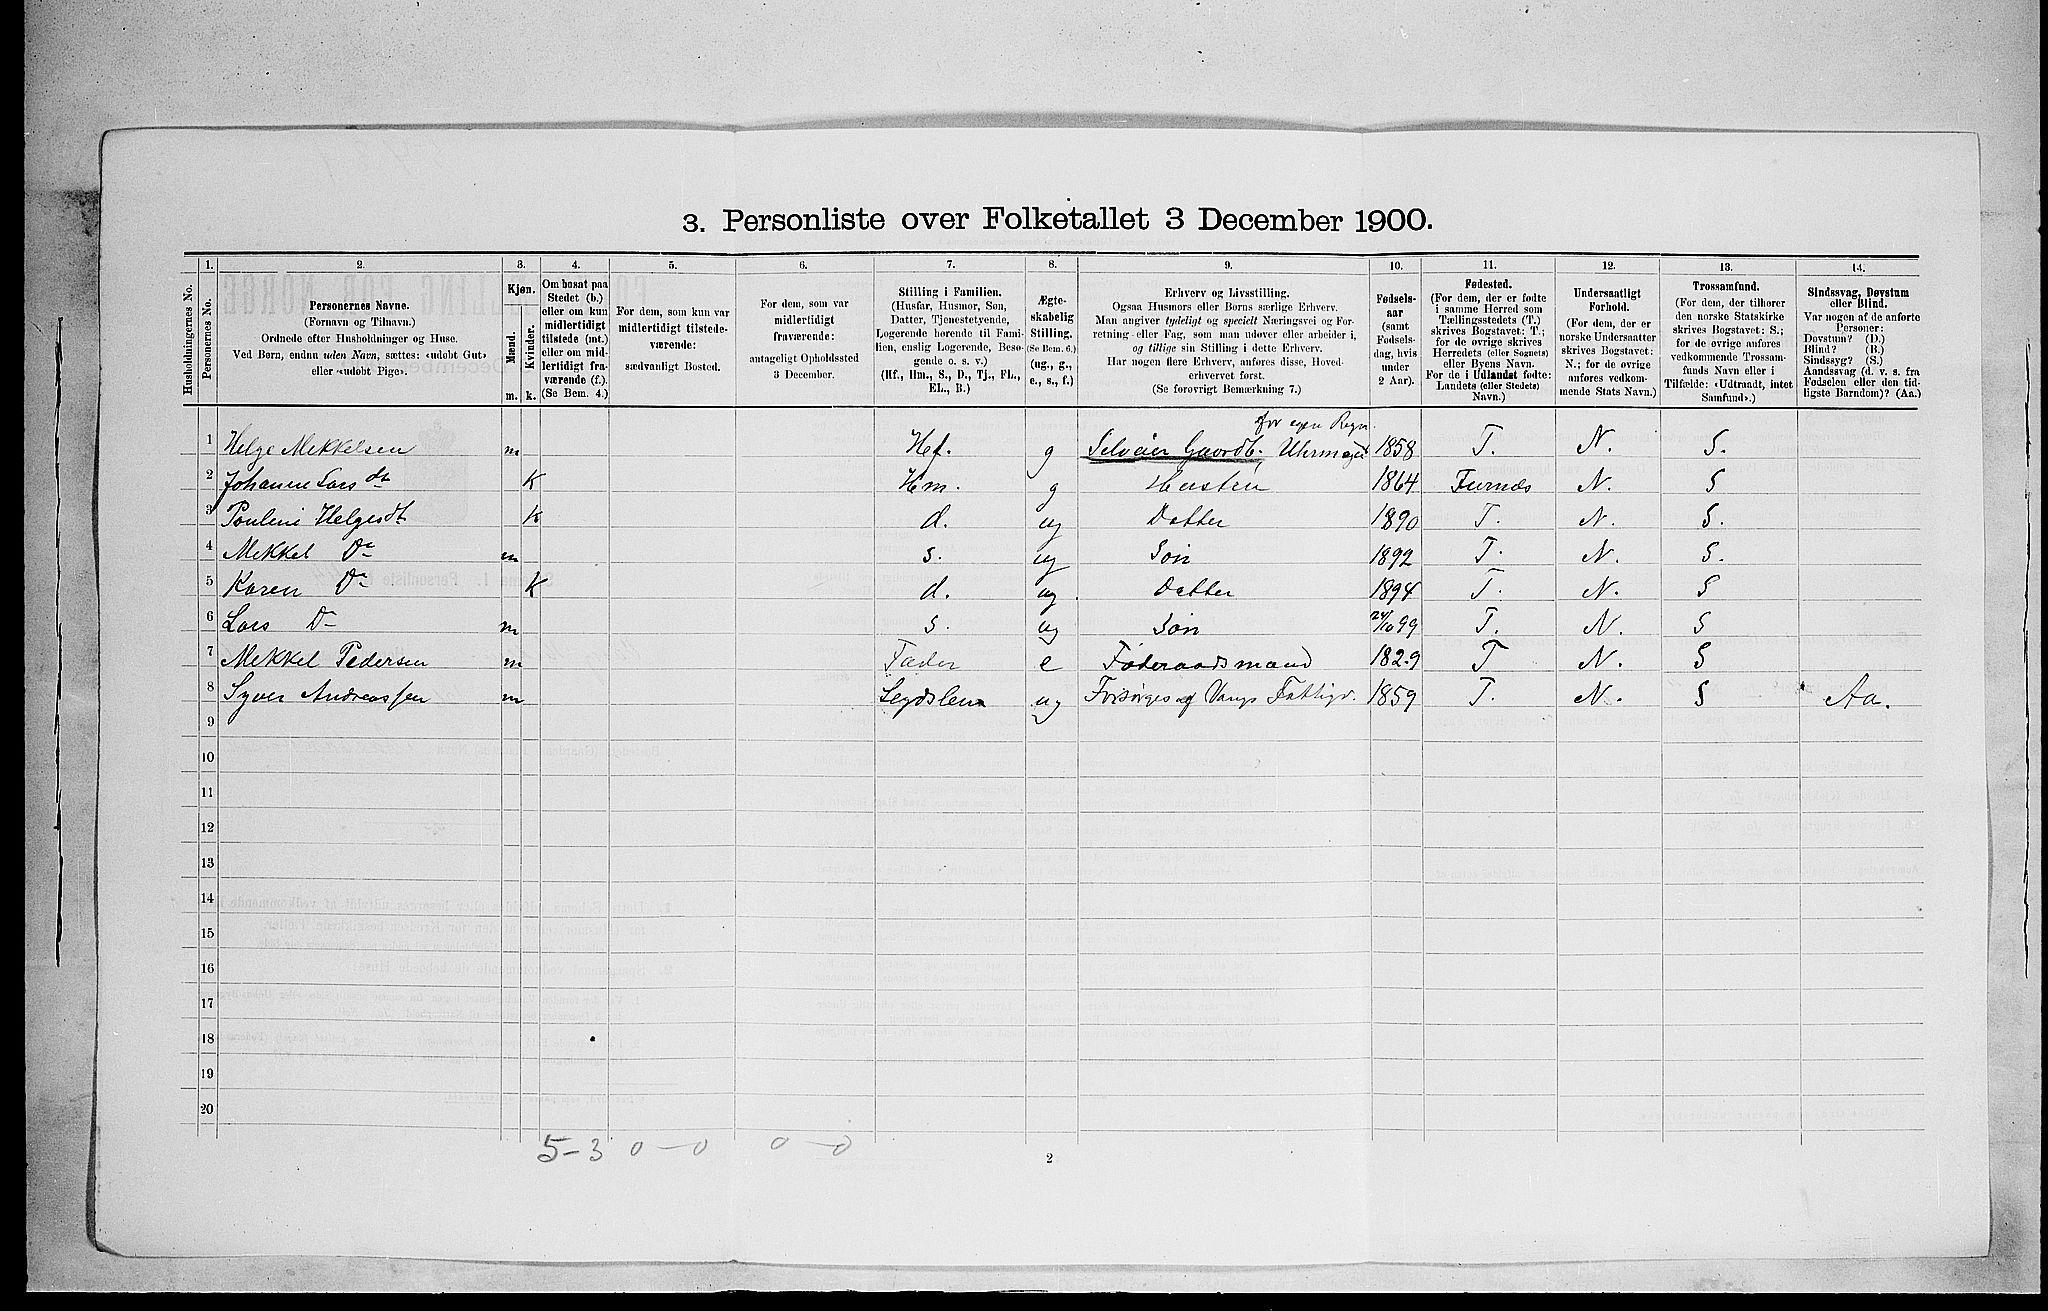 3. Personliste over Folketallet 3 December 1900.
Husholdningernes No.
1.
Personernes No.
2.
Personernes Navne.
(Fornavn og Tilnavn.)
Ordnede efter Husholdninger og Huse.
Ved Børn, endnu uden Navn, sættes: «udøbt Gut»
eller «udøbt Pige».
3.
Kjøn.
Mænd.
Kvinder.
m.
k.
4.
Om bosat paa
Stedet (b.)
eller om kun
midlertidigt
tilstede (mt.)
eller om mid-
lertidigt fra-
værende (f.).
(Se Bem. 4.)
5.
For dem, som kun var
midlertidigt tilstede-
værende:
sædvanligt Bosted.
6.
For dem, som var
midlertidigt
fraværende:
antageligt Opholdssted
3 December.
7.
Stilling i Familien.
(Husfar, Husmor, Søn,
Datter, Tjenestetyende,
Logerende hørende til Fami-
lien, enslig Logerende, Besø-
gende o. s. v.)
(Hf., Hm., S., D., Tj., FL.,
EL., B.)
8.
Ægte-
skabelig
Stilling.
(Se Bem. 6.)
(ug., g.,
e., s., f.)
9.
Erhverv og Livsstilling.
Ogsaa Husmors eller Børns særlige Erhverv.
Man angiver tydeligt og specielt Næringsvei og For-
retning eller Fag, som man udøver eller arbeider i,
og tillige sin Stilling i dette Erhverv.
Har nogen flere Erhverv, anføres disse, Hoved-
erhvervet først.
(Se forøvrigt Bemærkning 7.)
10.
Fødsels-
aar
(samt
Fødsels-
dag, hvis
under
2 Aar).
11.
Fødested.
(For dem, der er fødte
i samme Herred som
Tællingsstedets (T.)
skrives Bogstavet: T.;
for de øvrige skrives
Herredets (eller Sognets)
eller Byens Navn.
For de i Udlandet fødte:
Landets (eller Stedets)
Navn.)
12.
Undersaatligt
Forhold.
(For dem, der er
norske Undersaatter
skrives Bogstavet:
N.; for de øvrige
anføres vedkom-
mende Stats Navn.)
13.
Trossamfund.
(For dem, der tilhører
den norske Statskirke
skrives Bogstavet: S.;
for de øvrige anføres
vedkommende Trossam-
funds Navn eller i
Tilfælde: «Udtraadt, intet
Samfund».)
14.
Sindssvag, Døvstum
eller Blind.
Var nogen af de anførte
Personer:
Døvstum? (D.)
Blind? (B.)
Sindssyg? (S.)
Aandssvag (d. v. s. fra
Fødselen eller den tid-
ligste Barndom)? (Aa.)
for egen Regn.
1 Helge Mekkelsen m Hf. g Selveier Gaardb. Uhrmager 1858 T. N. S.
2 Johanne Lars dt K Hm. g Hustru 1864 Furnæs N. S
3 Pouline Helgesdt K d. ug Datter 1890 T. N. S.
4 Mekkel Do m s. ug Søn 1892 T. N. S.
5 Karen Do K d. ug. Datter 1894 T. N. S
6 Lars Do m s. ug Søn 24/10 99 T. N. S
7 Mekkel Pedersen m Fader e Føderaadsmand 1829 T N. S
8 Syver Andreassen m Legdslem ug Forsørges af Vangs Fattigv. 1859 T. N. S Aa.
9
10
11
12
13
14
15
16
17
18
19
20
5-3 0-0 0-0
2